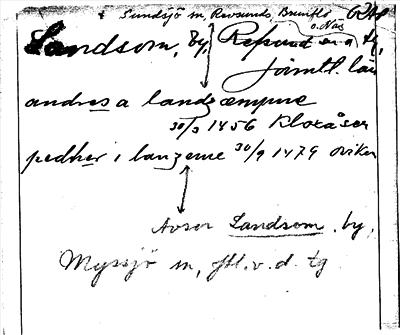 t Sundsjö sn, Revsunds, Brunflo
o. Näs
Landsom, by, Refsund sn o tg,
Jämtl. län
andres a landzæmpne
30/3 1456 Kloxåsen
pedher i lanzeme 30/9 1479 Oviken
Avser Landsom, by,
Myssjö sn, jtl. v. d. tg